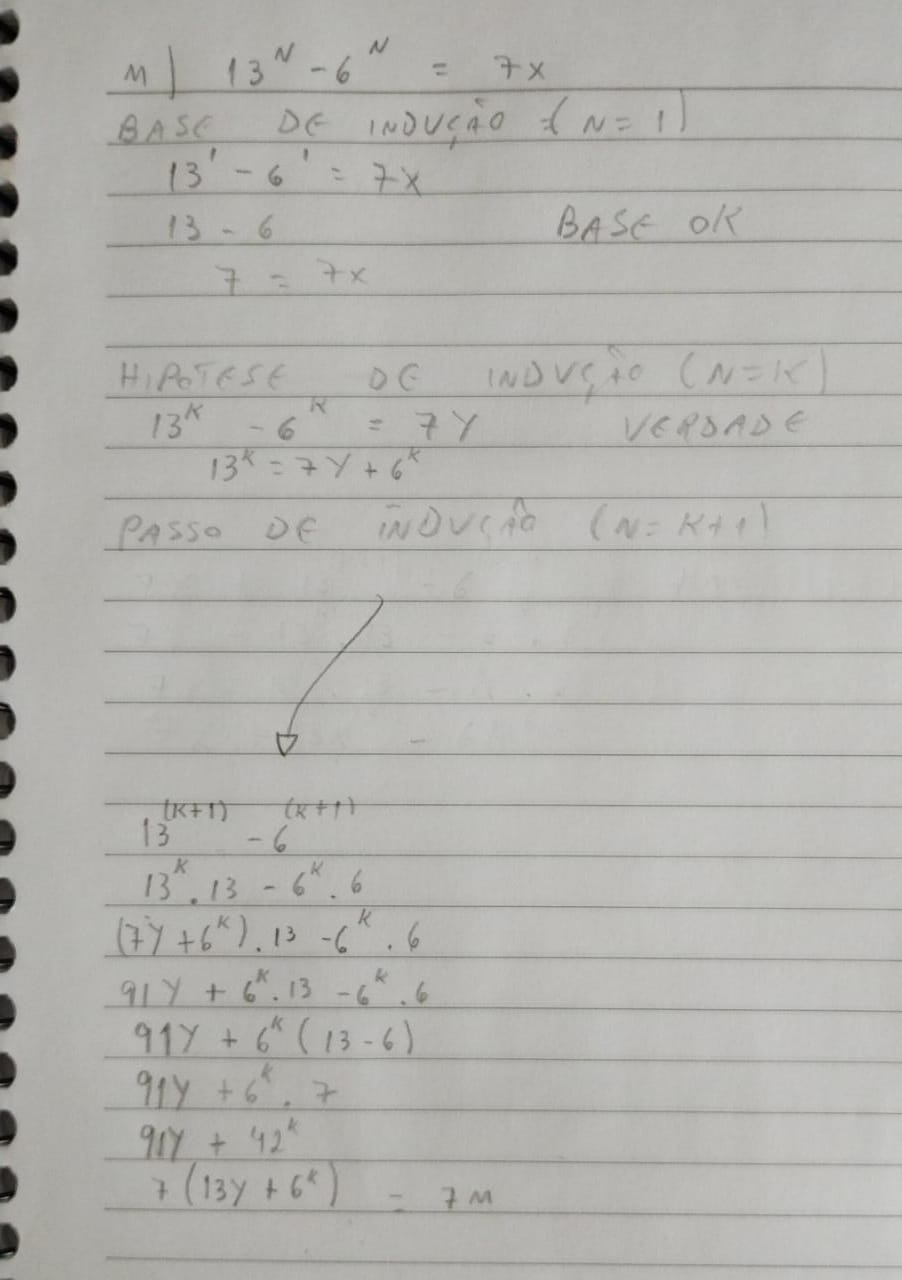 M) 13^N - 6^N = 7x
BASE DE INDUÇÃO (N = 1)
13^1 - 6^1 = 7x
13 - 6 BASE OK
7 = 7x
HIPOTESE DE INDUÇÃO (N=K)
13^K - 6^K = 7Y VERDADE
13^K = 7Y + 6^K
PASSO DE INDUÇÃO (N= K+1)
13^(K+1) - 6^(K+1)
13^K . 13 - 6^K . 6
(7Y + 6^K) . 13 - 6^K . 6
91Y + 6^K . 13 - 6^K . 6
91Y + 6^K (13 - 6)
91Y + 6^K . 7
91Y + 42^K
7 (13Y + 6^K) = 7M